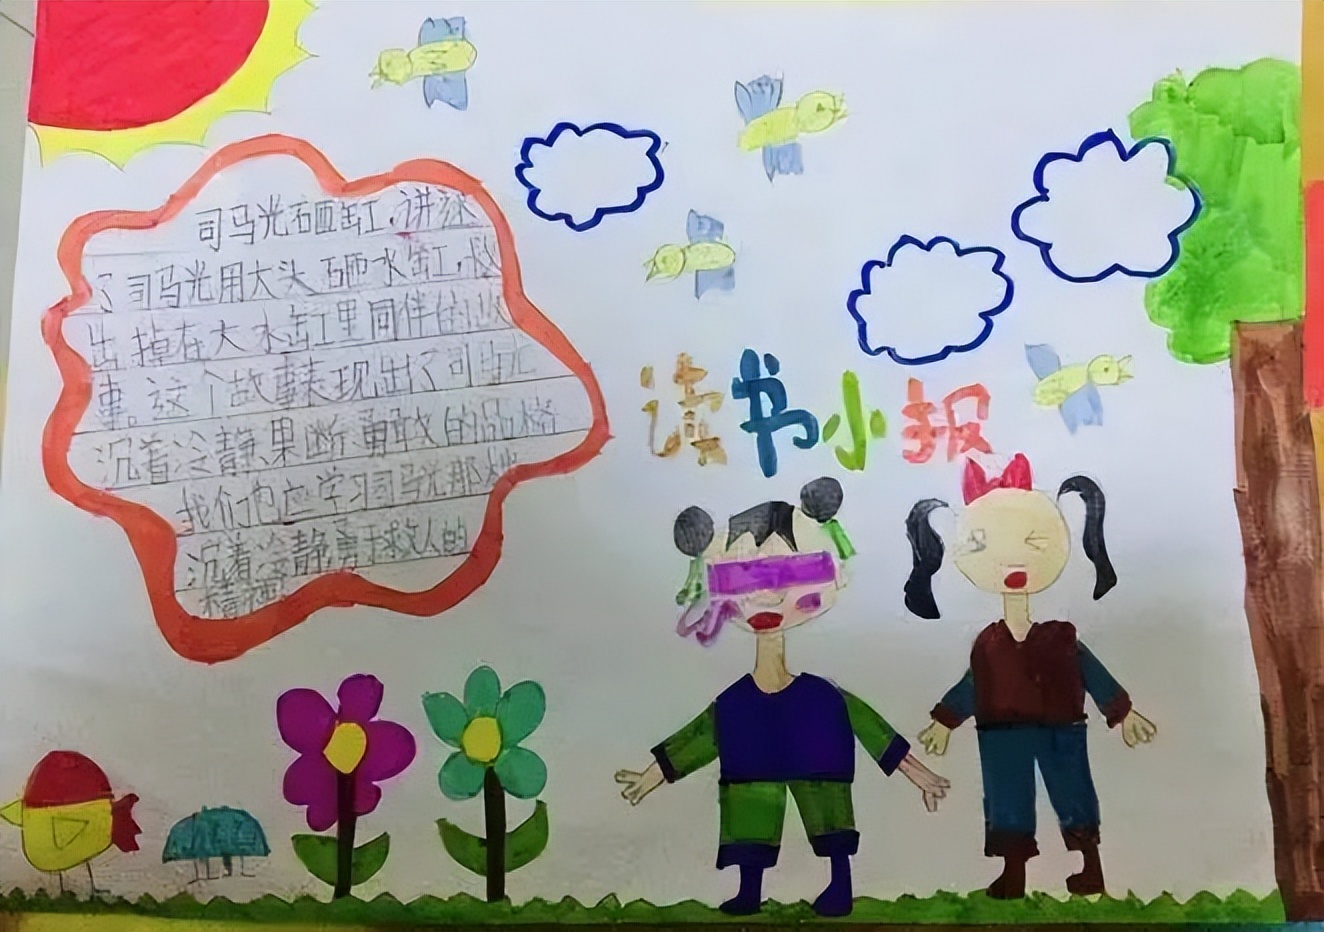 司马光砸缸，讲述
了司马光用大头砸水缸，救
出掉在大水缸里同伴的故
事。这个故事表现出了司马光
沉着冷静果断勇敢的品格
我们也应学习司马光那种
沉着冷静勇于救人的
精神
读书小报